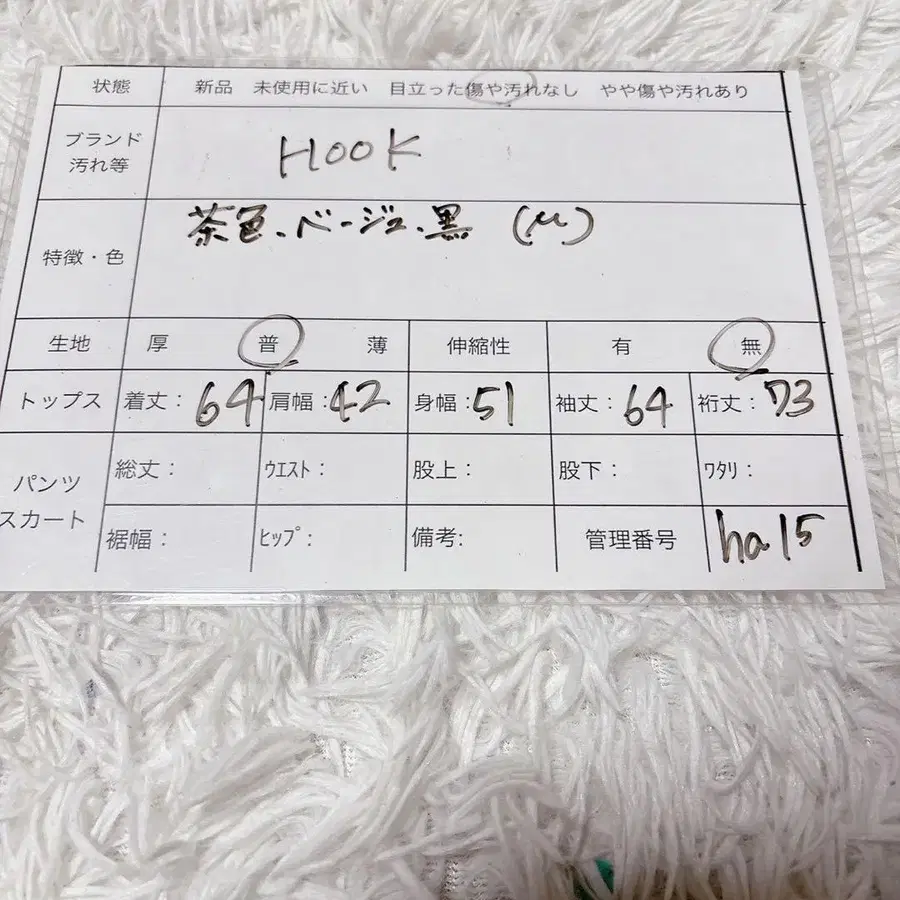 状態 新品 未使用に近い 目立った傷や汚れなし やや傷や汚れあり
ブランド
汚れ等
HOOK
特徴・色
茶色、ベージュ、黒 (M)
生地 厚 普 薄 伸縮性 有 無
トップス 着丈：64 肩幅：42 身幅：51 袖丈：64 裄丈：73
パンツ
スカート
総丈： ウエスト： 股上： 股下： ワタリ：
裾幅： ヒップ： 備考: 管理番号 ha15